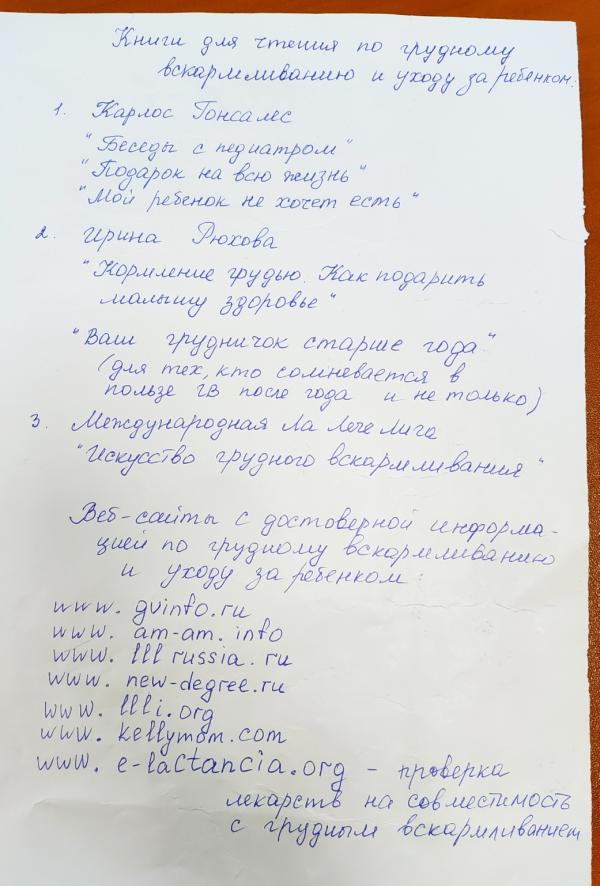 Книги для чтения по грудному
вскармливанию и уходу за ребенком:
1. Карлос Гонсалес
"Беседы с педиатром"
"Подарок на всю жизнь"
"Мой ребенок не хочет есть"
2. Ирина Рюхова
"Кормление грудью. Как подарить
малышу здоровье"
"Ваш грудничок старше года"
(для тех, кто сомневается в
пользе ГВ после года и не только)
3. Международная Ла Лече Лига
"Искусство грудного вскармливания"
Веб-сайты с достоверной информа-
цией по грудному вскармливанию
и уходу за ребенком:
www. gvinfo.ru
www. am-am.info
www. lll russia.ru
www. new-degree.ru
www. llli.org
www. kellymom.com
www. e-lactancia.org - проверка
лекарств на совместимость
с грудным вскармливанием